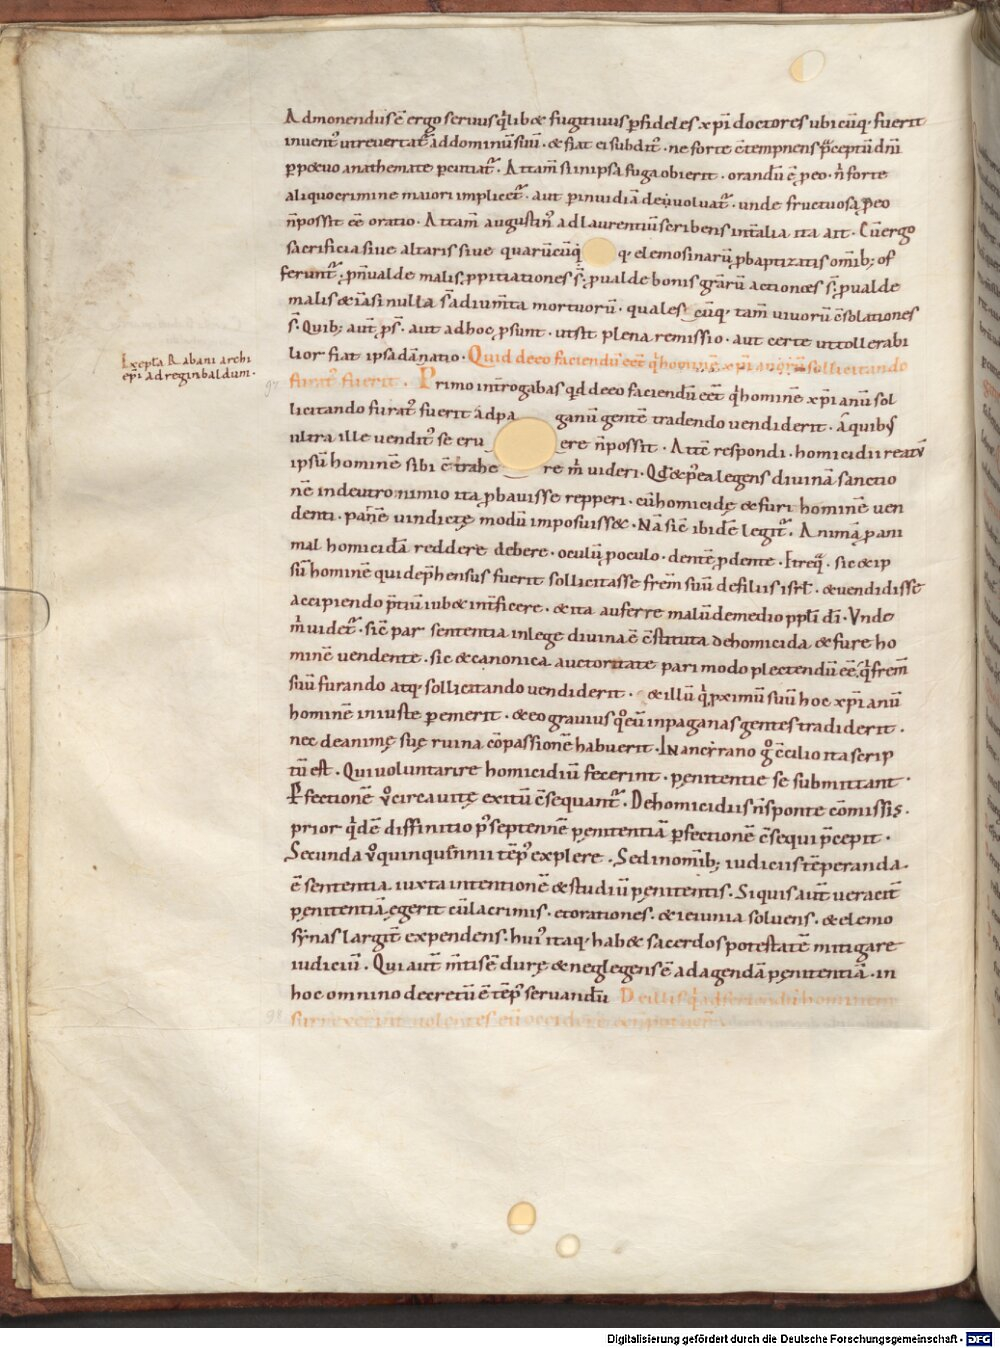 Admonendus ē ergo seruus q̇libet fugitiuus ꝑ fideles xp̄i doctores ubicūq· fuerit
inuent᾽ ut reuertat᾽ ad dominū suū· & fiat ei subdit᾽· ne forte c̄tempnens p̄ceptū dn̄i
ꝑpetuo anathemate pciat᾽· Attam̄ si in ipsa fuga obierit· orandū ē ꝓ eo· n̄ forte
aliquo crimine maiori implicet᾽· aut ꝑ inuidiā deuoluat᾽· unde fructuosa ꝓ eo
n̄ possit eē oratio· Attam̄ augustin᾽ ad laurentiū scribens int̄ alia ita ait· Cū ergo
sacrificia siue altaris siue quarūcūq̇ q· elemosinarū ꝓ baptizatis om̄ib; of
ferunt᾽· ꝓ n̄ ualde malis ꝓpitiationes s̄· ꝓ ualde bonis grār̄ū actiones s̄· ꝓ ualde
malis &iāsi nulla s̄ adium̄ta mortuorū· quales cūq· tam̄ uiuorū c̄solationes
s̄· Quib; aut̄ ꝓs̄· aut ad hoc ꝓsunt· ut sit plena remissio· aut certe ut tollerabi
lior fiat ipsa dānatio· Quid de eo faciendū eēt q̇ hominē xp̄ianū sollicitando
furat᾽ fuerit· Primo int̄rogabas qd de eo faciendū eēt q̇ hominē xp̄ianū sol
licitando furat᾽ fuerit ad pa ganū gentē tradendo uendiderit· a quibȝ
ultra ille uendit᾽ se eru ere n̄ possit· At tē respondi· homicidii reatū
ipsū hominē sibi c̄trahe re m̄ uideri· Qd & ꝑ ea legens diuinā sanctio
nē in deutronimio ita ꝓbauisse repperi· cū homicidę & furi hominē uen
denti· parē uindictę modū imposuisset· Nā sic̄ ibidē legit᾽· Animā ꝓ ani
ma homicidā reddere debere· oculū ꝓ oculo· dentē ꝓ dente· Et req̄· sic & ip
sū hominē qui dep̄hensus fuerit sollicitasse fr̄em suū de filiis isrl̄· & uendidisse
accipiendo p̄tiū iubet int̄ficere· & ita auferre malū de medio ppl̄i dī· Vnde
m̄ uidet᾽· sic̄ par sententia in lege diuina ē c̄stituta de homicida & fure ho
minē uendente· sic & canonica auctoritate pari modo plectendū eē· q̇ fr̄em
suū furando atq· sollicitando uendiderit· & illū q̇ ꝓximū suū hoc xp̄ianū
hominē iniuste pemerit· & eo grauius qᵒ eū in paganas gentes tradiderit·
nec de animę suę ruina cōpassionē habuerit· In ancyrano qᵒ c̄cilio ita scrip
tū est· Qui uoluntarire homicidiū fecerint· pęnitentie se submittant·
Pfectionē uᵒ circa uitę exitū c̄sequant᾽· De homicidiis n̄ sponte cōmissis·
prior q̇dē diffinitio p᾽ septennē pęnitentiā ꝑfectionē c̄sequi p̄cepit·
Secunda uᵒ quinquēnnii tēp᾽ explere· Sed in om̄ib; iudiciis tēperanda
ē sententia iuxta intentionē & studiū pęnitentis· Si quis aut̄ ueracit̄
pęnitentiā egerit cū lacrimis· et orationes· & ieiunia soluens· & elemo
synas largit̄ expendens· hui᾽ itaq· habet sacerdos potestatē mitigare
iudiciū· Qui aut̄ m̄tis ē durę & neglegens ē ad agendā pęnitentiā· in
hoc omnino decretū ē tēp᾽ seruandū De illis q̇ ad feriendū hominem
surrexerint nolentes eū occidere
Excepta Rabani archi
epī ad reginbaldum·
97
98
Digitalisierung gefördert durch die Deutsche Forschungsgemeinschaft - DFG